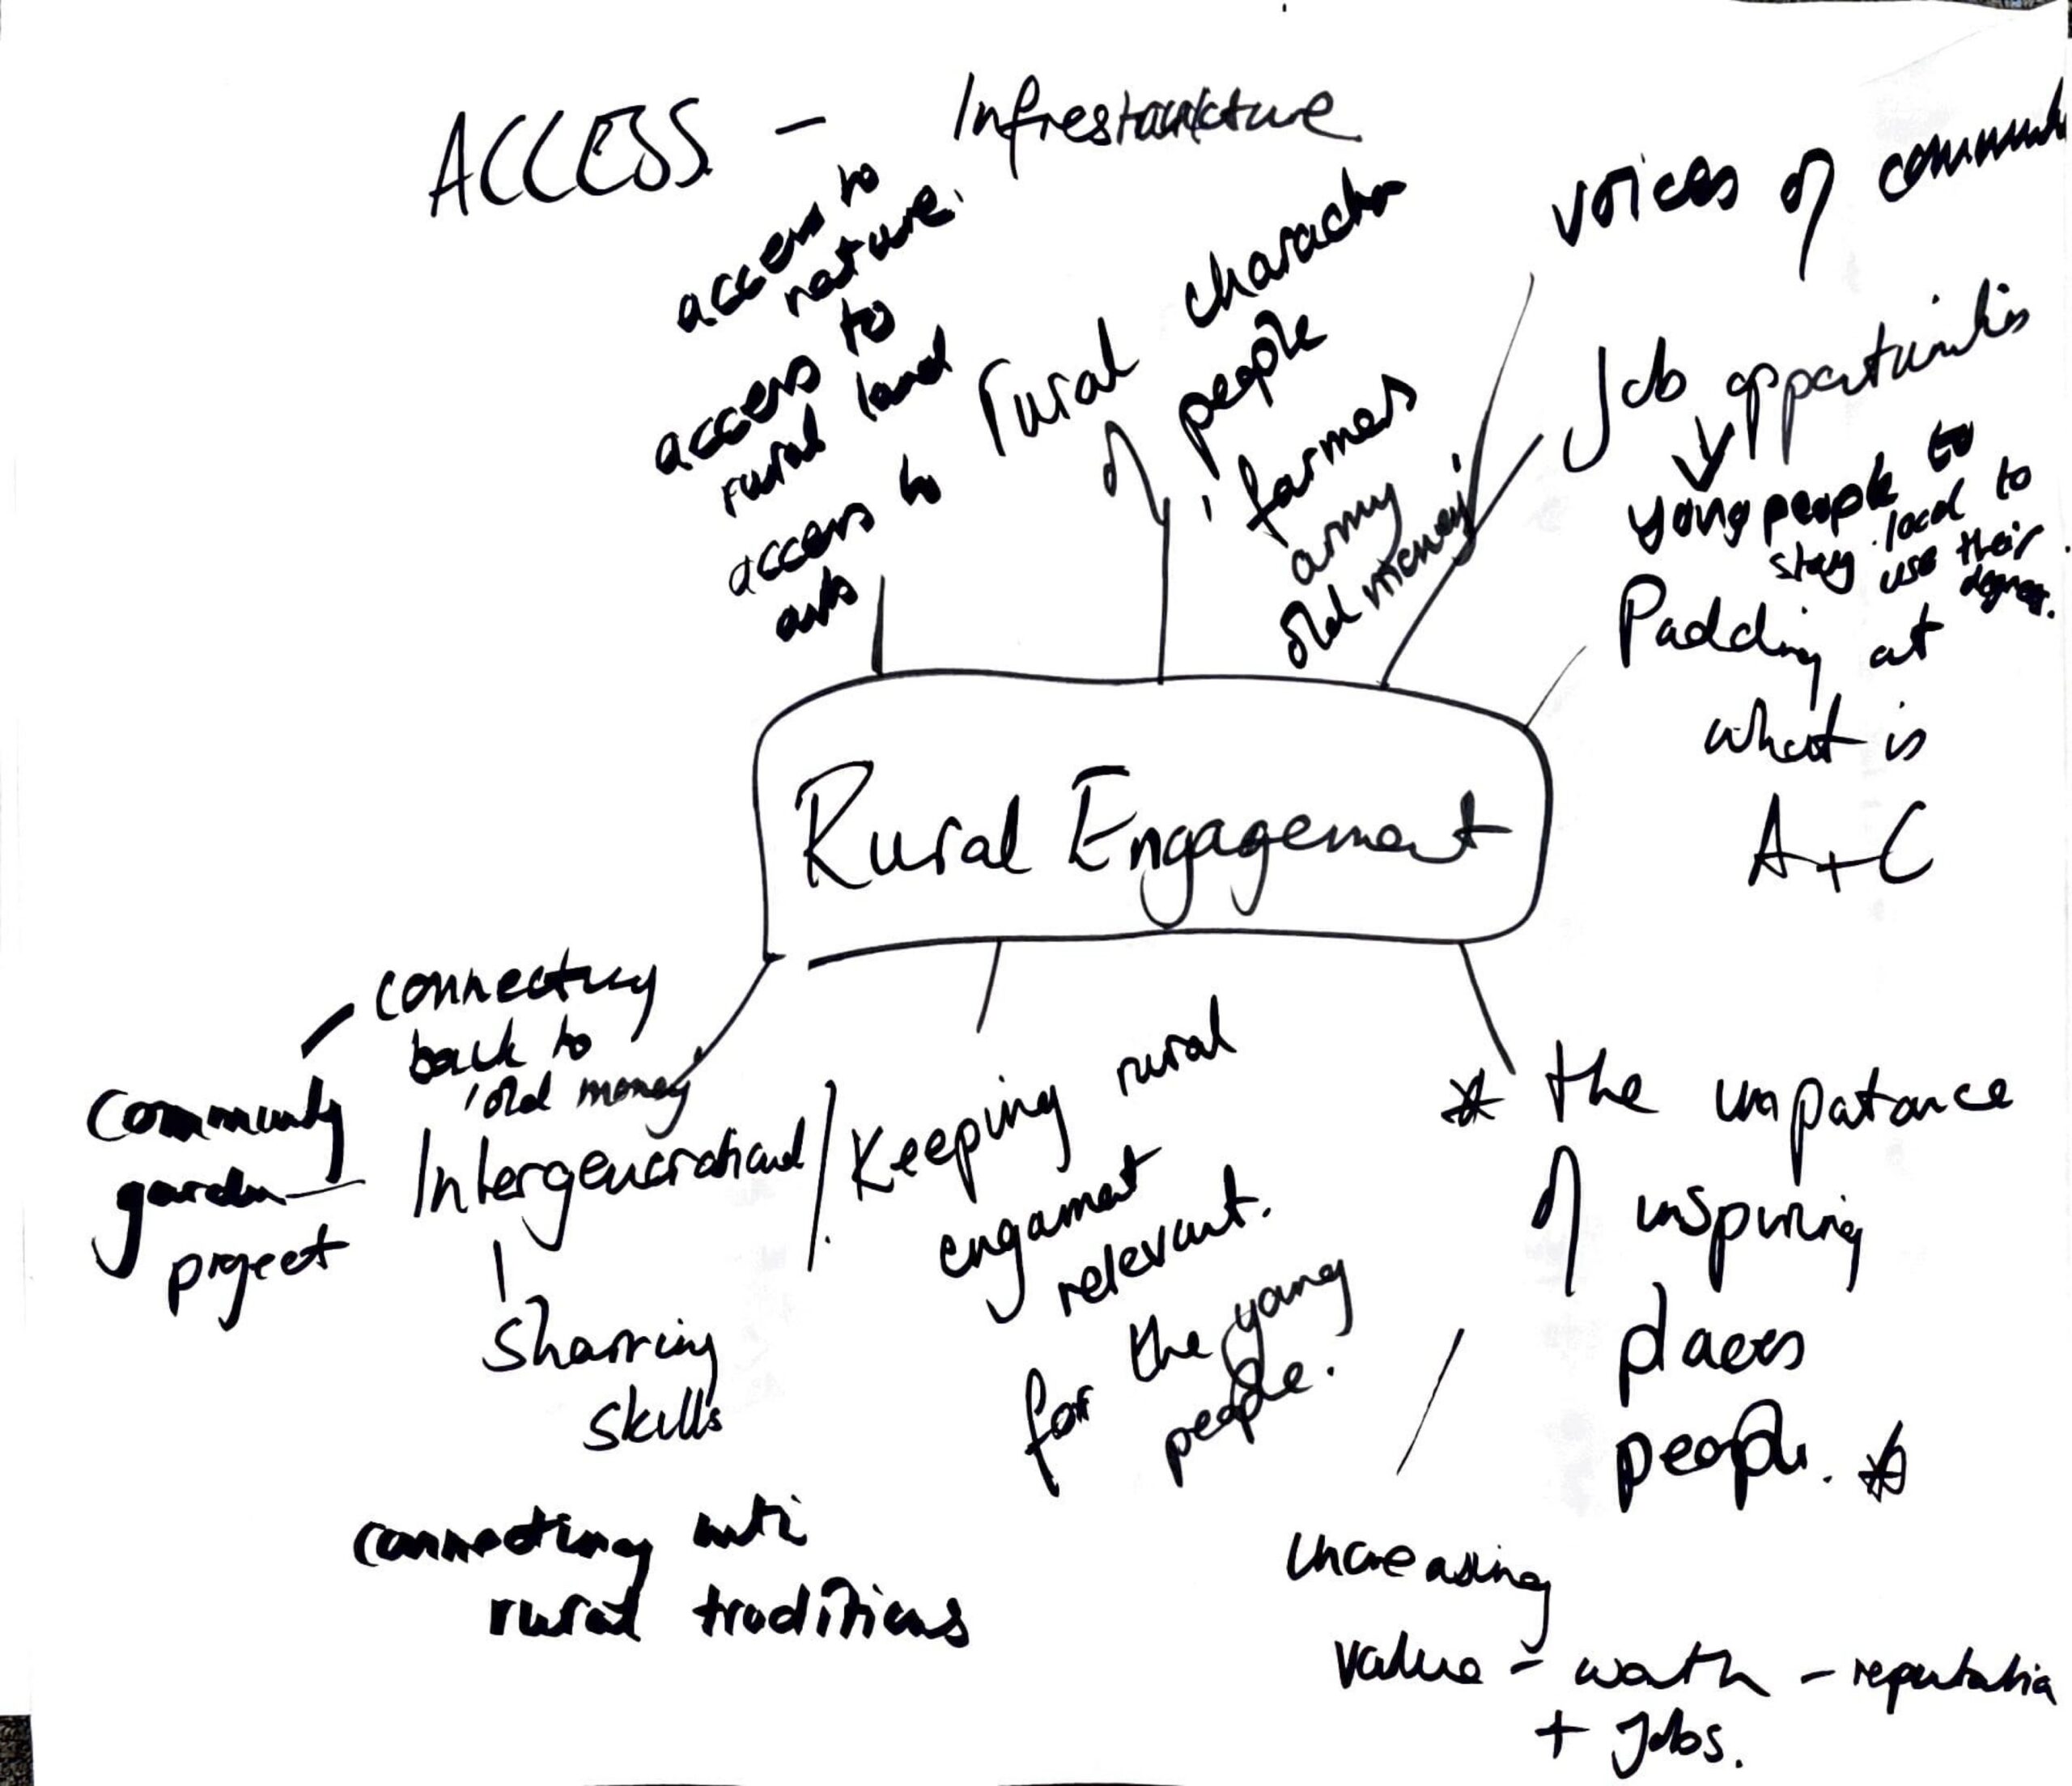 ACCESS - Infrestructure
access to
nature.
access to
rural land
access to
arts
rural character
of people
farmers
army
old money
voices of commun
Job opportunities
young people to
stay local to
use their
degrees.
Padding at
what is
A+C
Rural Engagement
connecting
back to
'old money
Community
garden
project
Intergenerational
Sharring
skills
connecting
rural traditions
Keeping rural
engament
relevant.
for the young
people.
* the impatance
of inspiring
places
people. *
increasing
value - worth - reputatia
+ Jobs.